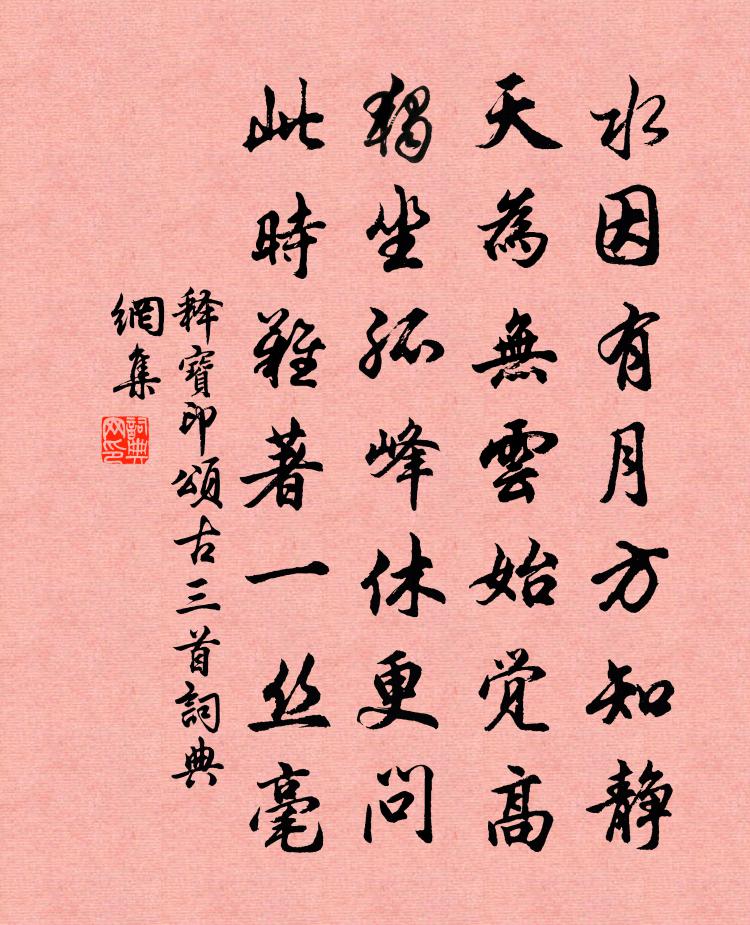 水因有月方知静
天為無雲始觉高
獨坐孤峰休更問
此時難著一丝毫
释寶印頌古三首詞典
網集
詞典
网印